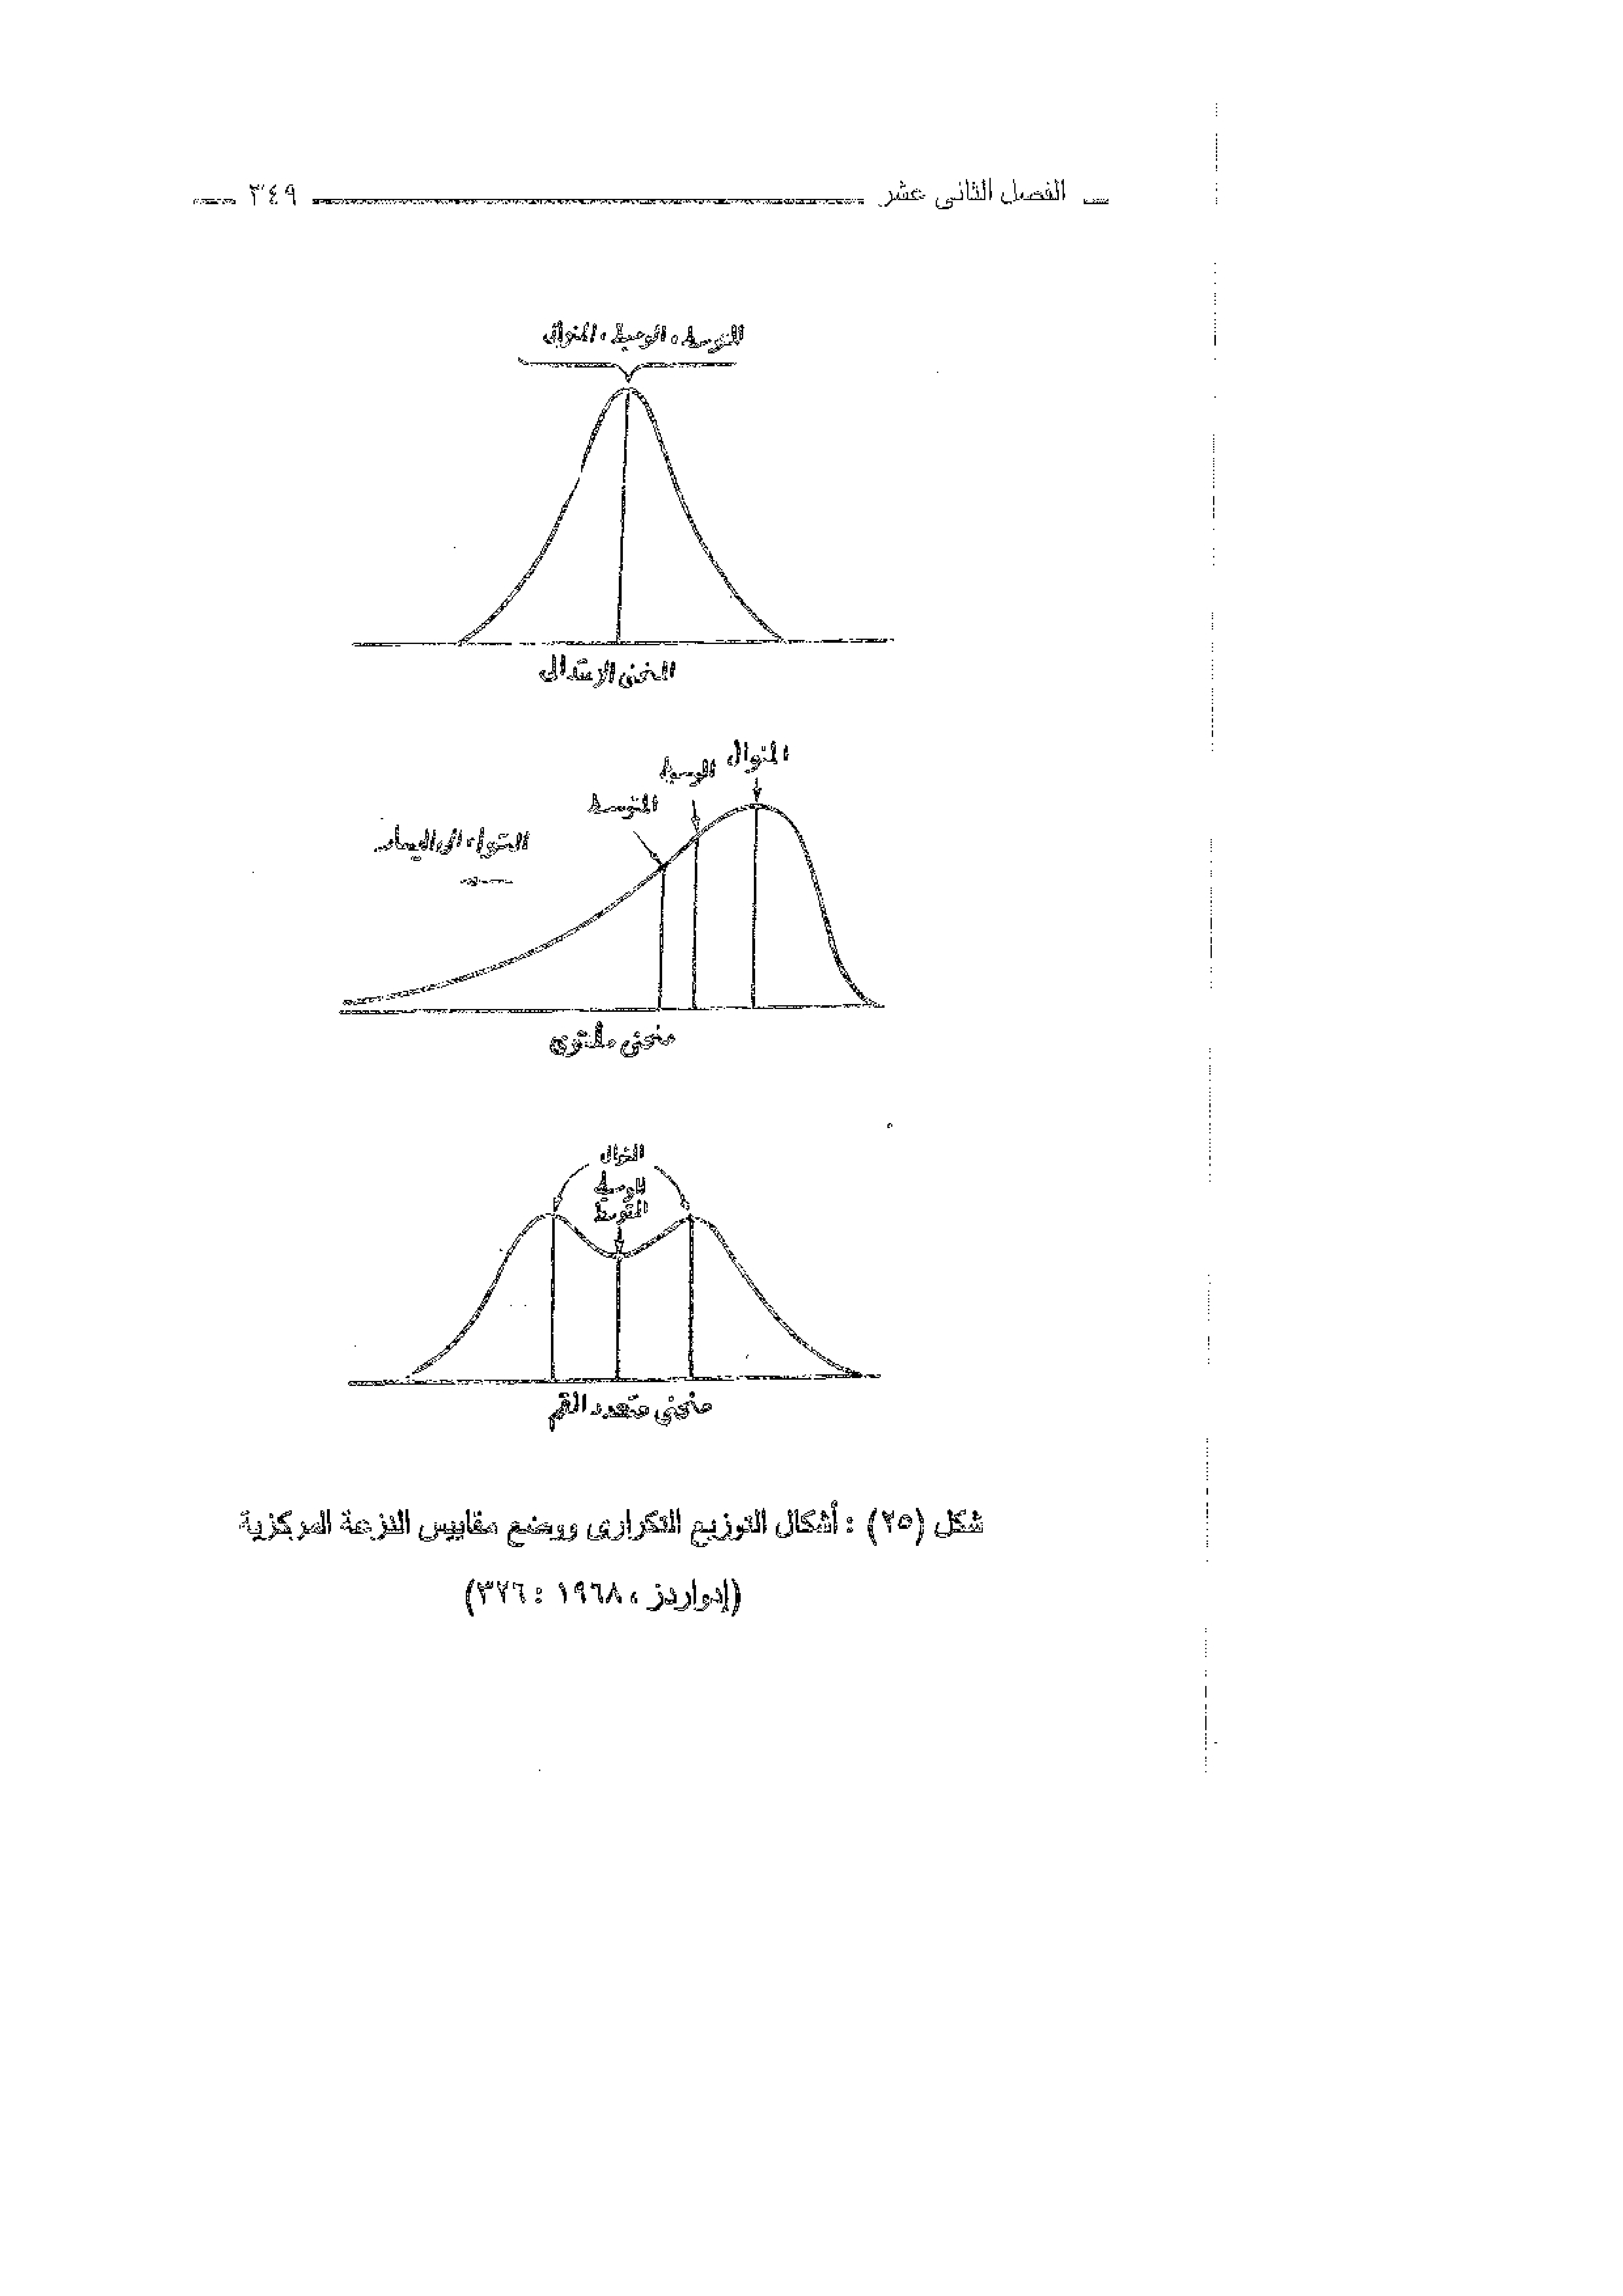 الفصل الثانى عشر ٣٤٩
المتوسط ، الوسيط ، المنوال
المنحنى الاعتدالى
المنوال
الوسيط
المتوسط
التواء الى اليسار
منحنى ملتوى
المنوال
الوسيط
المتوسط
منحنى متعدد القمم
شكل (٢٥) : أشكال التوزيع التكرارى ووضع مقاييس النزعة المركزية
(إدواردز ، ١٩٦٨ : ٣٢٦)